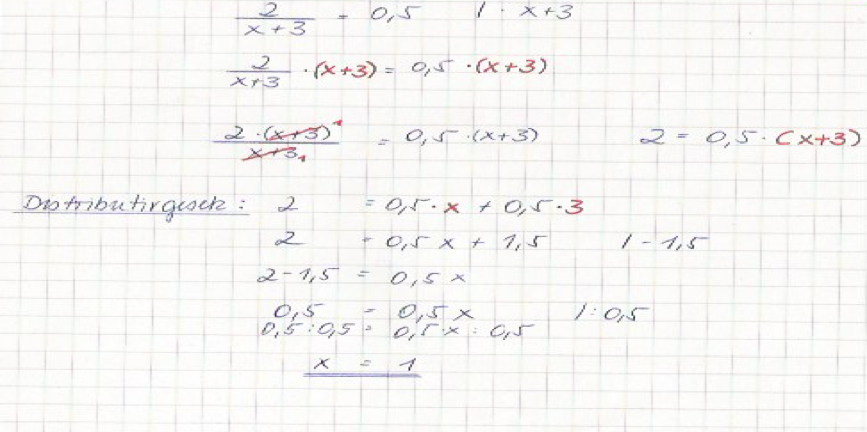 2/(x+3) = 0,5 | · x+3
2/(x+3) · (x+3) = 0,5 · (x+3)
2 · (x+3) 1 / x+3 1 = 0,5 · (x+3) 2 = 0,5 · (x+3)
Distributivgesetz : 2 = 0,5 · x + 0,5 · 3
2 = 0,5 x + 1,5 | - 1,5
2 - 1,5 = 0,5 x
0,5 = 0,5 x | : 0,5
0,5 : 0,5 = 0,5 x : 0,5
x = 1